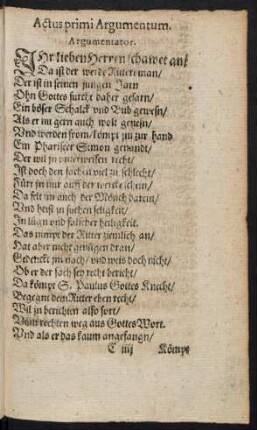 Actus primi Argumentum.
Argumentator.
IHr lieben Herren schawet an/
Da ist der werde Rittersman/
Der ist in seinen jungen Jarn
Ohn Gottes furcht daher gefarn/
Ein böser Schalck vnd Bub gewesn/
Als er nu gern auch wolt genesn/
Vnd werden from/ kömpt jm zur hand
Ein Phariseer Simon genandt/
Der wil jn vnterweisen recht/
Ist doch den sachen viel zu schlecht/
Fürt jn nur auff der werck schein/
Da felt jm auch der Mönch darein/
Vnd heist jn suchen seligkeit/
In lügn vnd falscher heiligkeit.
Das nimpt der Ritter ziemlich an/
Hat aber nicht genügen dran/
Gedenckt jm nach/ vnd weis doch nicht/
Ob er der sach sey recht bericht/
Da kömpt S. Paulus Gottes Knecht/
Begegnt dem Ritter eben recht/
Wil jn berichten also fort/
Vom rechten weg aus Gottes Wort.
Vnd als er das kaum angefangn/
C iiij Kömpt